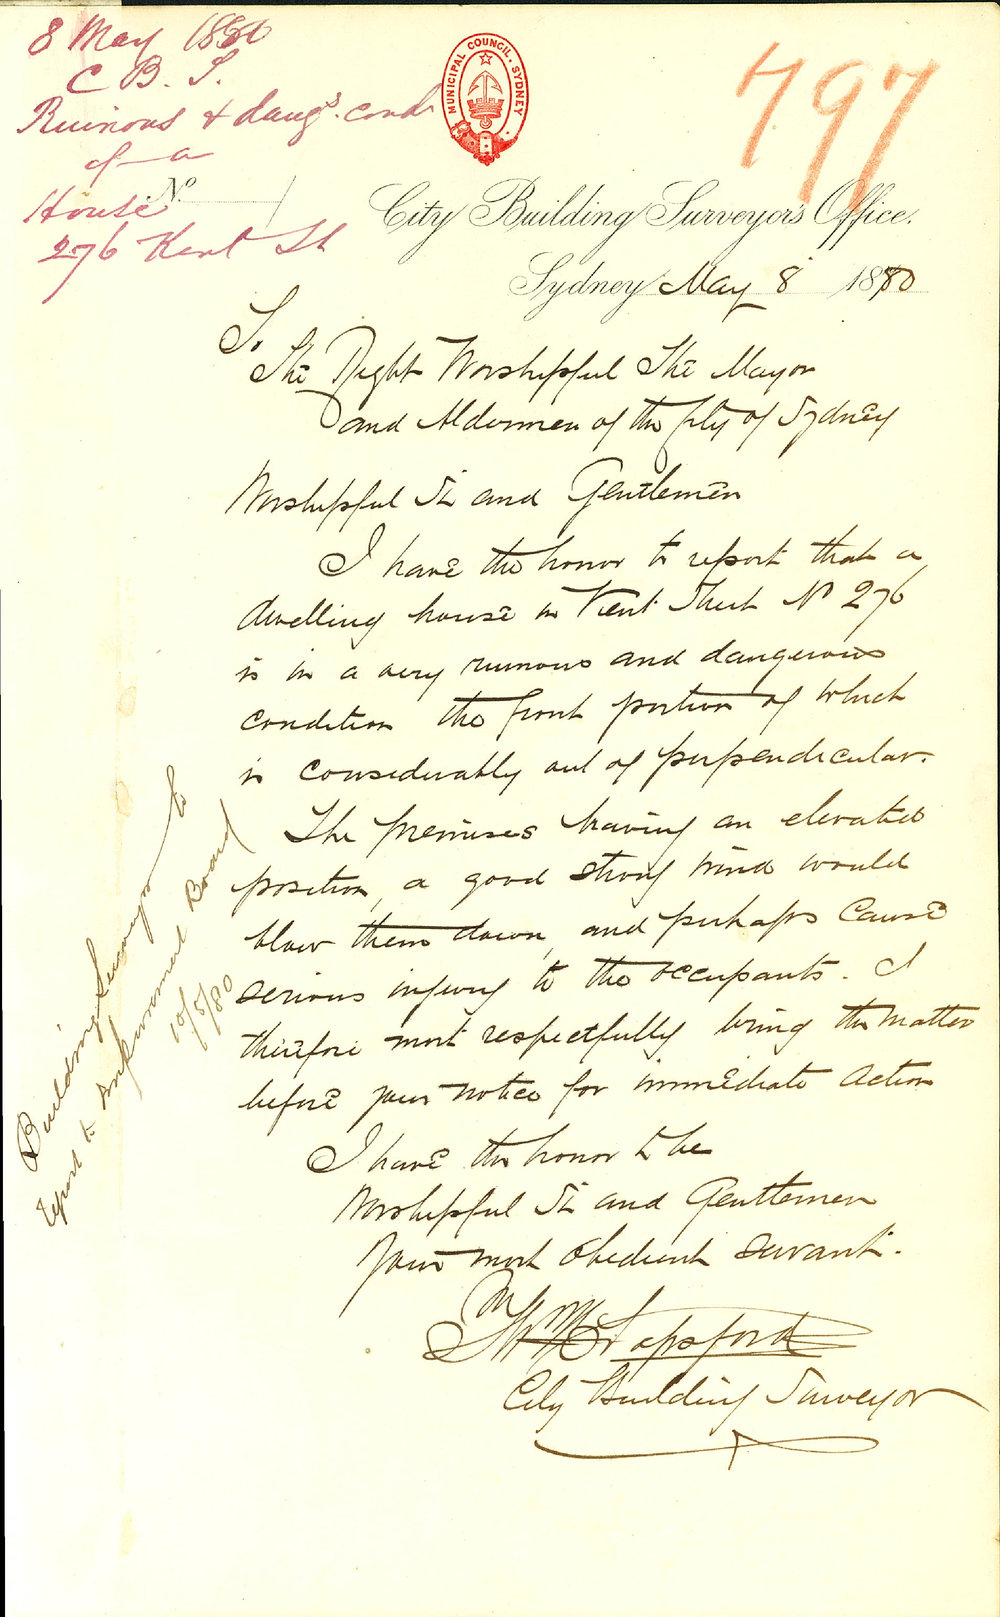 8 May 1880
C B. S.
Ruinous & dangs. cond
of a
House
276 Kent St
MUNICIPAL COUNCIL. SYDNEY
797
No.
City Building Surveyor's Office.
Sydney May 8 1880
To
The Right Worshipful The Mayor
and Aldermen of the City of Sydney
Worshipful Sir and Gentlemen
I have the honor to report that a
dwelling house in Kent Street No 276
is in a very ruinous and dangerous
condition the front portion of which
is considerably out of perpendicular.
The premises having an elevated
position, a good strong wind would
blow them down, and perhaps cause
serious injury to the occupants. I
therefore most respectfully bring the matter
before your notice for immediate action
I have the honor to be
Worshipful Sir and Gentlemen
Your most obedient servant.
Lapsford
City Building Surveyor
Building Surveyor to
report to Improvement Board
10/5/80